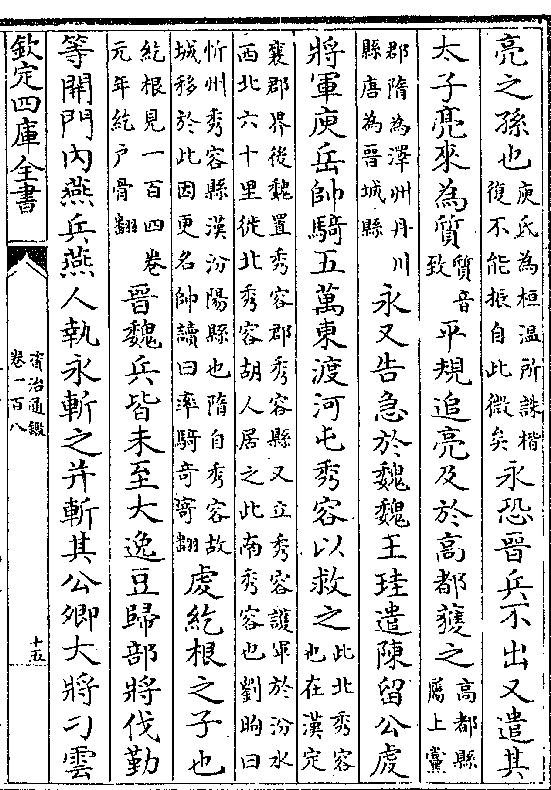 亮之孫也庾氏為桓溫所誅楷復不能振自此微矣永恐晉兵不出又遣其
太子亮來為質質音致平規追亮及於高都獲之高都縣屬上黨
郡隋為澤州丹川縣唐為晉城縣永又告急於魏魏王珪遣陳留公䖍
將軍庾岳帥騎五萬東渡河屯秀容以救之此北秀容也在漢定
襄郡界後魏置秀容郡秀容縣又立秀容護軍於汾水西北六十里徙北秀容胡人居之此南秀容也劉昫曰
忻州秀容縣漢汾陽縣也隋自秀容故城移於此因更名帥讀曰率騎奇寄翻䖍紇根之子也
紇根見一百四卷元年紇戶骨翻晉魏兵皆未至大逸豆歸部將伐勤
等開門内燕兵燕人執永斬之并斬其公卿大將刁雲
欽定四庫全書
資治通鑑
卷一百八
十五